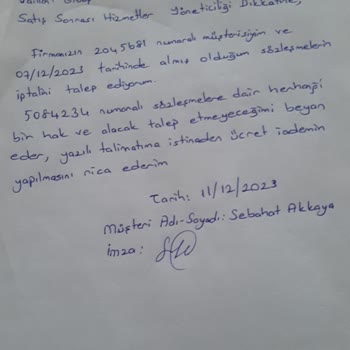 Group
Satış Sonrası Hizmetler Yöneticiliği Dikkatine,
Firmanızın 2045681 numaralı müşterisiyim ve
07/12/2023 tarihinde almış olduğum sözleşmelerin
iptalini talep ediyorum.
5084234 numaralı sözleşmelere dair herhangi
bir hak ve alacak talep etmeyeceğimi beyan
eder, yazılı talimatıma istinaden ücret iademin
yapılmasını rica ederim
Tarih: 11/12/2023
Müşteri Adı-Soyadı: Sebahat Akkaya
İmza: